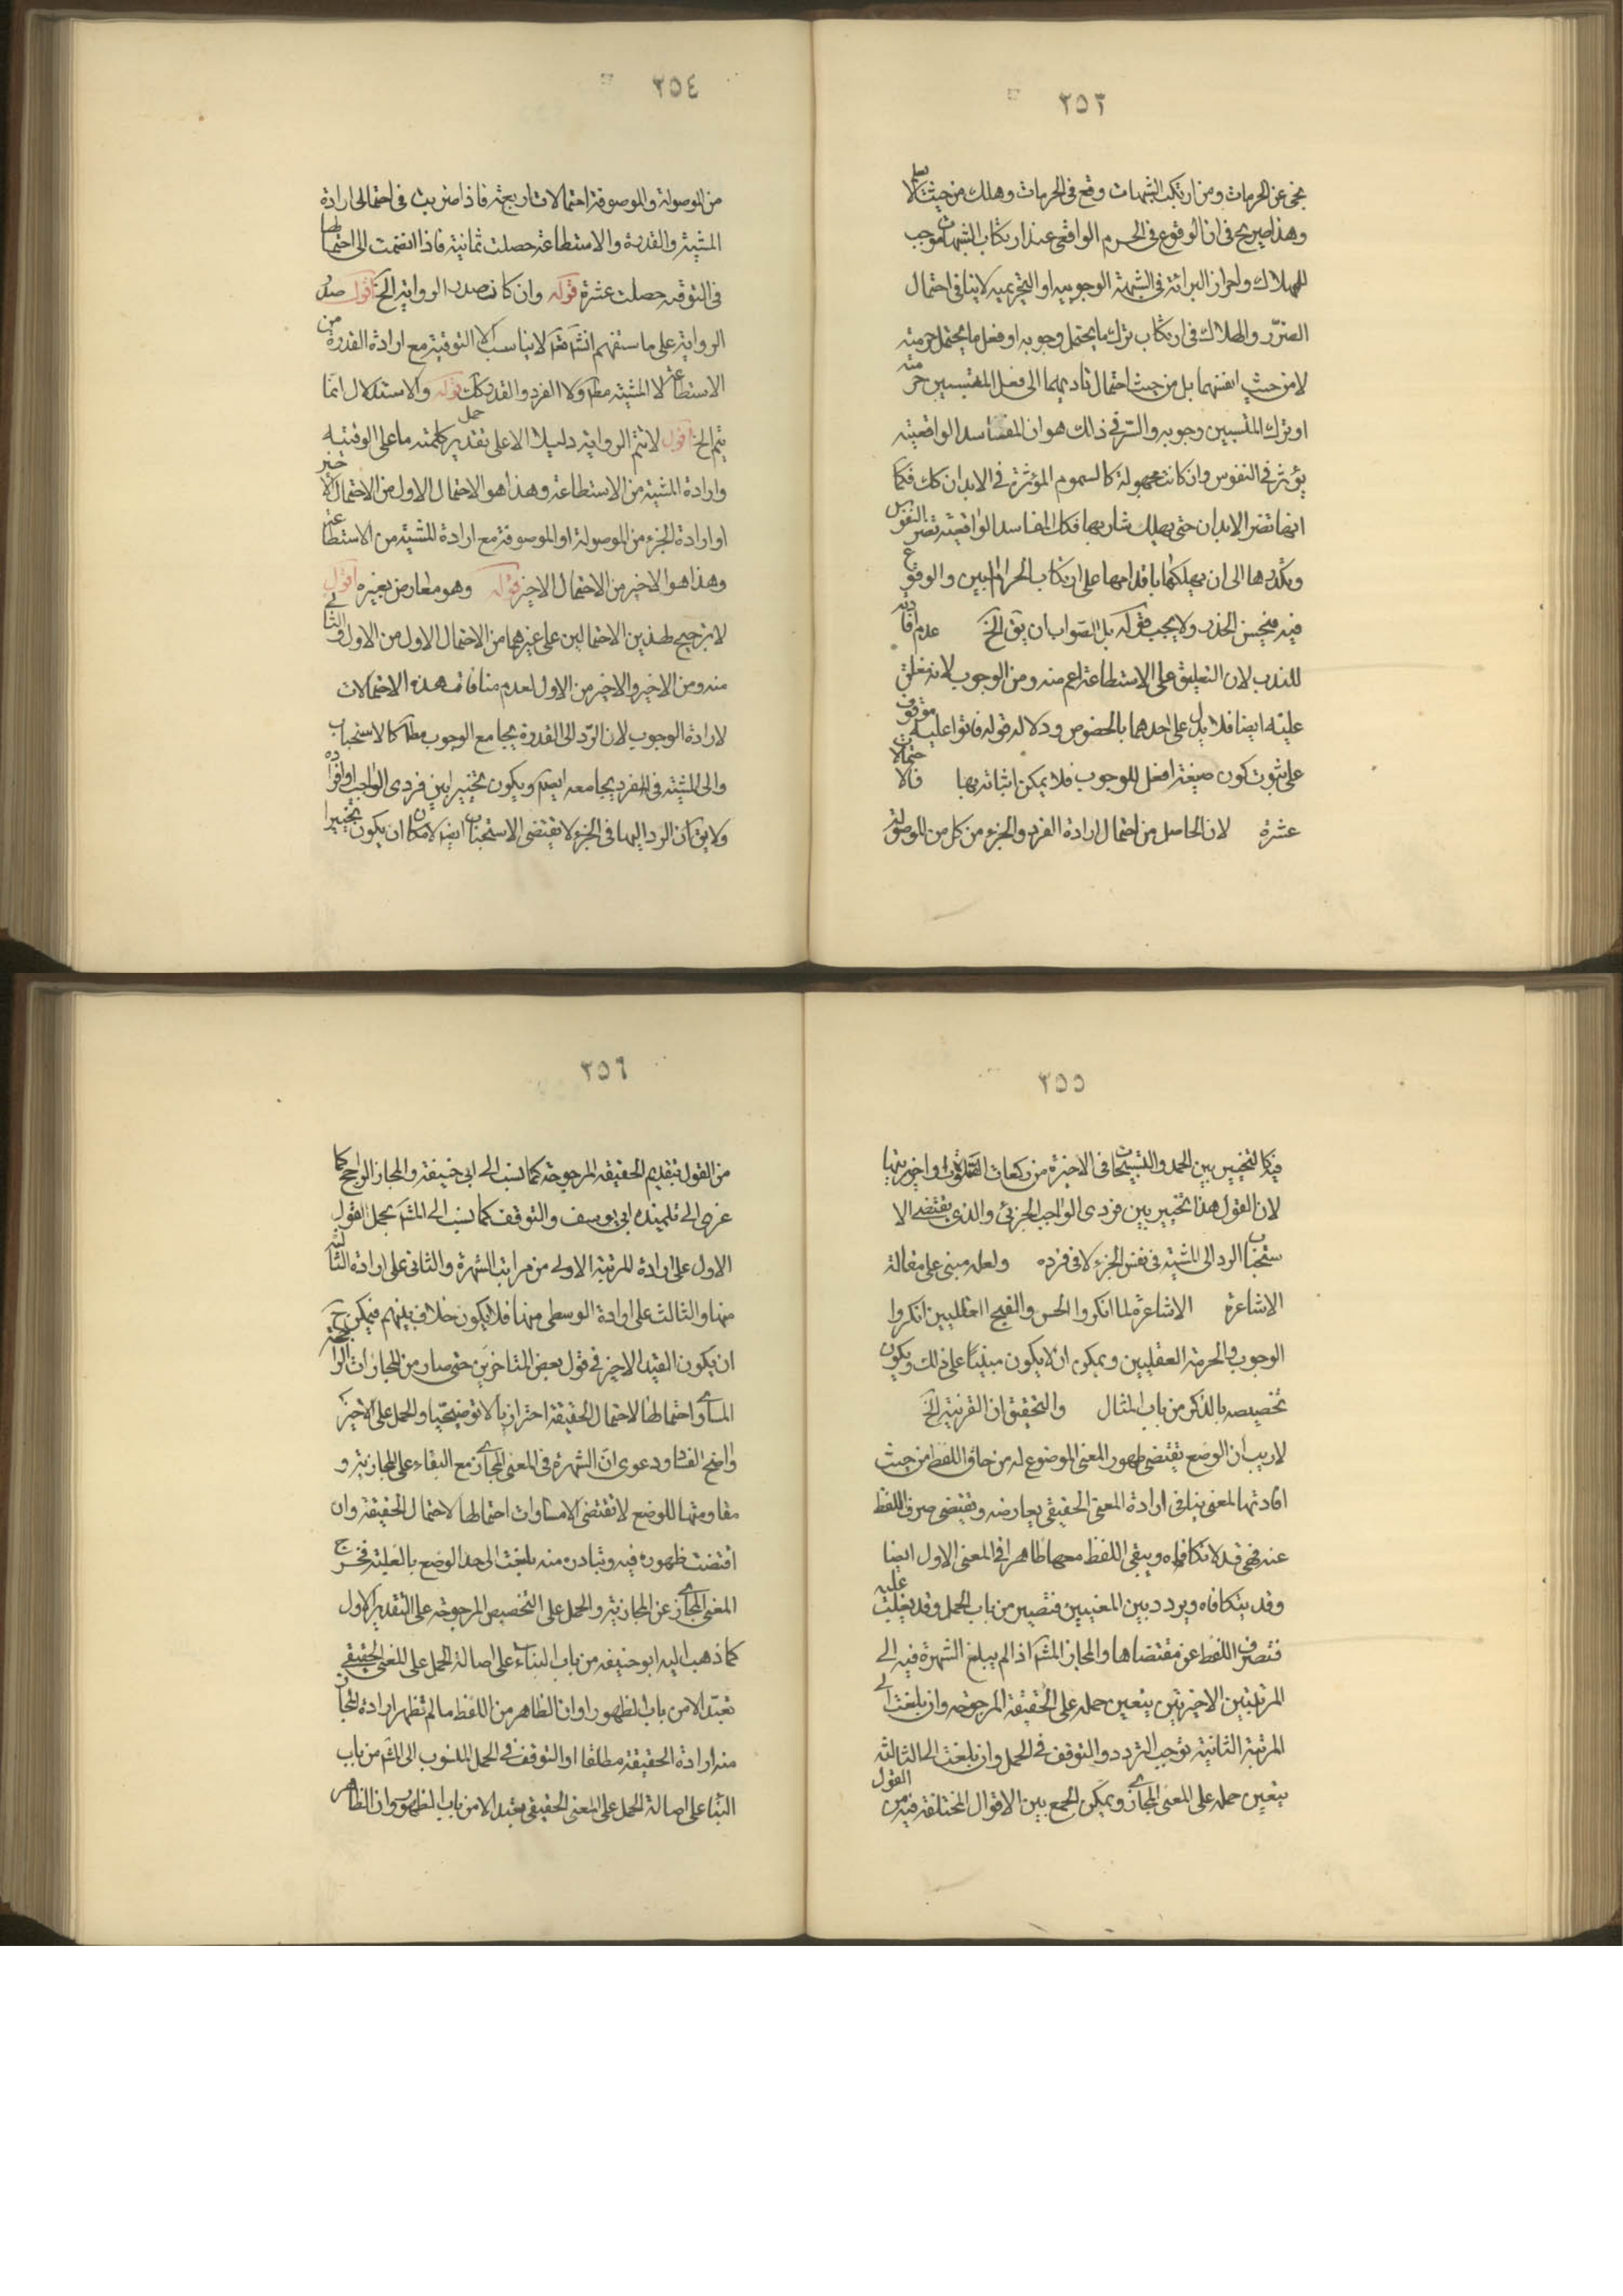 ٢٥٣
نجى عن الحرمات ومن ارتكب الشبهات وقع فى الحرمات وهلك من حيث لا يعلم
وهذا صريح فى ان الوقوع فى الحرم الواقعى عند ارتكاب الشبهات موجب
للهلاك واحراز البرائة فى الشبهة الوجوبيه او التحريميه لا ينافى احتمال
الضرر والهلاك فى ارتكاب ترك ما يحتمل وجوبه او فعل ما يحتمل حرمته
لا من حيث انفسهما بل من حيث احتمال تاديهما الى فعل الملتبسين حرمته
او ترك الملتبسين وجوبه والسر فى ذلك هو ان المفاسد الواقعيته
يؤثر فى النفوس وان كانت مجهولة كالسموم المؤثرة فى الابدان كك فكما
انها تضر الابدان حتى يهلك شاربها فكك المفاسد الواقعيته تضر النفوس
ويكدرها الى ان يهلكها باقدامها على ارتكاب الحرام البين والوقوع
فيه فيحسن الحذر ولا يجب قوله بل الصواب ان يق الخ عدم افادته
للندب لان التعليق على الاستطاعة اعم منه ومن الوجوب لانه معلق
عليه ايضا فلا يدل على احدهما بالخصوص ودلالة قوله فاتوا عليه موقوف
على ثبوت كون صيغة افعل للوجوب فلا يمكن اثباته بها فالاحتمالات
عشرة لان الحاصل من احتمال ارادة الفرد والجزء من كل من الموصولة
٢٥٤
من الموصولة والموصوفة احتمالات اربعة فاذا ضربت فى احتمالى ارادة
المشية والقدرة والاستطاعة حصلت ثمانية فاذا انضمت الى احتمالها
فى التوقيه حصلت عشرة قوله وان كان صدر الرواية الخ اقول صدر
الرواية على ما ستفهم انشآءالله لا يناسب الا التوقية مع ارادة القدرة من
الاستطاعة لا المشية مطم ولا الفرد والقدر كك قوله والاستدلال انما
يتم الخ اقول لا تتم الرواية دليلا الا على تقدير حمل كلمة ما على الوقتيه
وارادة المشية من الاستطاعة وهذا هو الاحتمال الاول من الاحتمال الاخير
او ارادة الجزء من الموصولة او الموصوفة مع ارادة المشيه من الاستطاعة
وهذا هو الاخير من الاحتمال الاخير قوله وهو معارض بغيره اقول
لا ترجيح لهذين الاحتمالين على غيرهما من الاحتمال الاول من الاول والثانى
منه ومن الاخير والاخير من الاول لعدم منافات هذه الاحتمالات
لارادة الوجوب لان الرد الى القدرة يجامع الوجوب مطم كالاستحباب
والى المشيه فى الفرد يجامعه ايضا ويكون تخييرا بين فردى الواجب او افراده
ولا يق ان الرد اليها فى الجزء لا يقتضى الاستحباب ايضا لامكان ان يكون تخييرا
٢٥٥
فيه كالتخيير بين الحمد والتسبيحات فى الاخيرة من ركعات الثلاثة او اخيرتيها
لان القول هذا تخيير بين فردى الواجب الجزئى والذى يقتضى الا
ستحباب الرد الى المشية فى نفس الجزء لا فى فرده ولعله مبنى على مقالة
الاشاعرة الاشاعرة لما انكروا الحسن والقبح العقليين انكروا
الوجوب والحرمة العقليين ويمكن ان لا يكون مبنيا على ذلك ويكون
تخصيصه بالذكر من باب المثال والتحقيق ان القرنية الخ
لا ريب ان الوضع يقتضى ظهور المعنى الموضوع له من حاق اللفظ من حيث
افادتها لمعنى ينافى ارادة المعنى الحقيقى يعارضه وتقتضى صرف اللفظ
عنه فهى قد لا تكافاه ويبقى اللفظ معها ظاهرا فى المعنى الاول ايضا
وقد يتكافاه ويردد بين المعنيين فتصير من باب الحمل وقد يغلب عليه
فتصرف اللفظ عن مقتضاها والمجاز المشم اذا لم يبلغ الشهرة فيه الى
المرتبتين الاخيرتين يتعين حمله على الحقيقة المرجوحة وان بلغت الى
المرتبة الثانية توجب التردد والتوقف فى الحمل وان بلغت الى الثالثة
يتعين حمله على المعنى المجازى ويمكن الجمع بين الاقوال المختلفة فيه من القول
٢٥٦
من القول بتقديم الحقيقة المرجوحة كما نسب الى ابى حنيفة والمجاز الراجح كما
عزى الى تلميذه ابى يوسف والتوقف كما نسب الى المشم بحمل القول
الاول على ارادة المرتبة الاولى من مراتب الشهرة والثانى على ارادة الثالثة
منها والثالث على ارادة الوسطى منها فلا يكون خلاف بينهم فيمكن ح
ان يكون القيد الاخير فى قول بعض المتاخرين حتى صار من المجازات الراجحة
المساوى احتمالها لاحتمال الحقيقة احترازيا لا توضيحيا والحمل على الاخير
واضح الفساد ودعوى ان الشهرة فى المعنى المجازى مع البقاء على المجازية و
مقاومتها للوضع لا تقتضى الا مساوات احتمالها لاحتمال الحقيقة وان
اقتضت ظهوره فيه وتبادره منه بلغت الى حد الوضع بالغلبة فخرج
المعنى المجازى عن المجازية والحمل على التخصيص المرجوحة على التقدير الاول
كما ذهب اليه ابو حنيفه من باب البناء على اصالة الحمل على المعنى الحقيقى
تعبدا لا من باب الظهور او ان الظاهر من اللفظ ما لم تظهر ارادة المجاز
منه ارادة الحقيقة مطلقا او التوقف فى الحمل المنسوب الى المشم من باب
البناء على اصالة الحمل على المعنى الحقيقى تعبدا لا من باب الظهور وان الظاهر